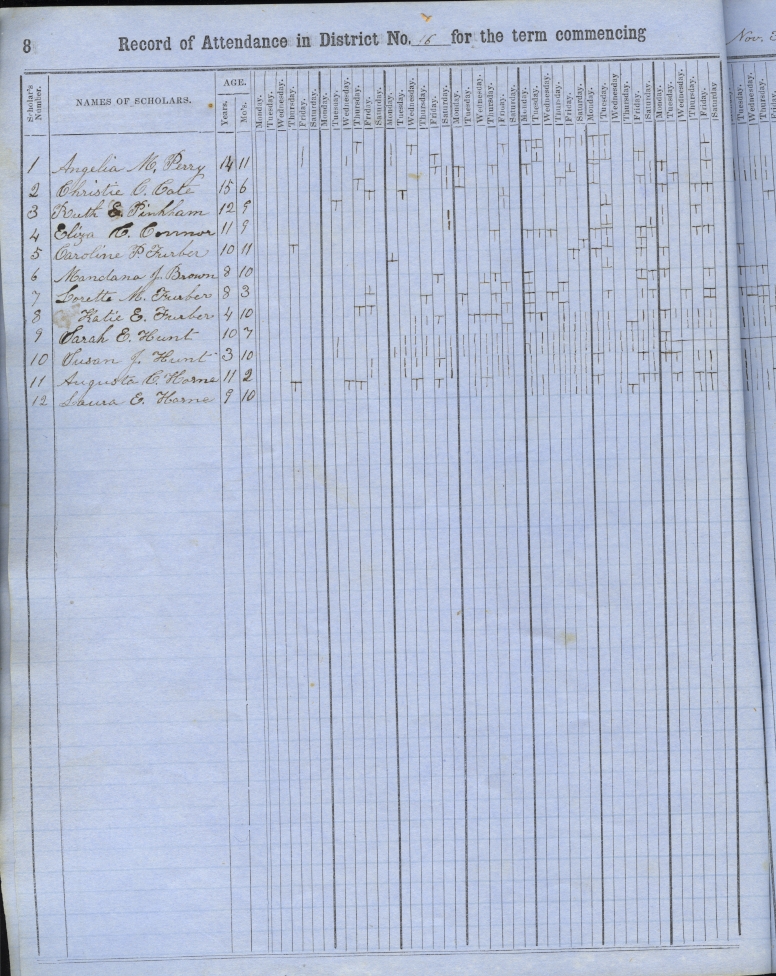 8 Record of Attendance in District No. 16 for the term commencing Nov.
Scholar's Number. NAMES OF SCHOLARS. AGE. Years. Mo's. Monday. Tuesday. Wednesday. Thursday. Friday. Saturday. Monday. Tuesday. Wednesday. Thursday. Friday. Saturday. Monday. Tuesday. Wednesday. Thursday. Friday. Saturday. Monday. Tuesday. Wednesday. Thursday. Friday. Saturday. Monday. Tuesday. Wednesday. Thursday. Friday. Saturday. Monday. Tuesday. Wednesday Thursday. Friday. Saturday. Monday. Tuesday. Wednesday. Thursday. Friday. Saturday Tuesday. Wednesday. Thursday.
1 Angelia M. Perry 14 11
2 Christie C. Cate 15 6
3 Ruth E. Pinkham 12 9
4 Eliza C. Connor 11 9
5 Caroline P. Furber 10 11
6 Mandana J. Brown 8 10
7 Loretta M. Furber 8 3
8 Katie E. Furber 4 10
9 Sarah E. Hunt 10 7
10 Susan J. Hunt 3 10
11 Augusta C. Horne 11 2
12 Laura E. Horne 9 10